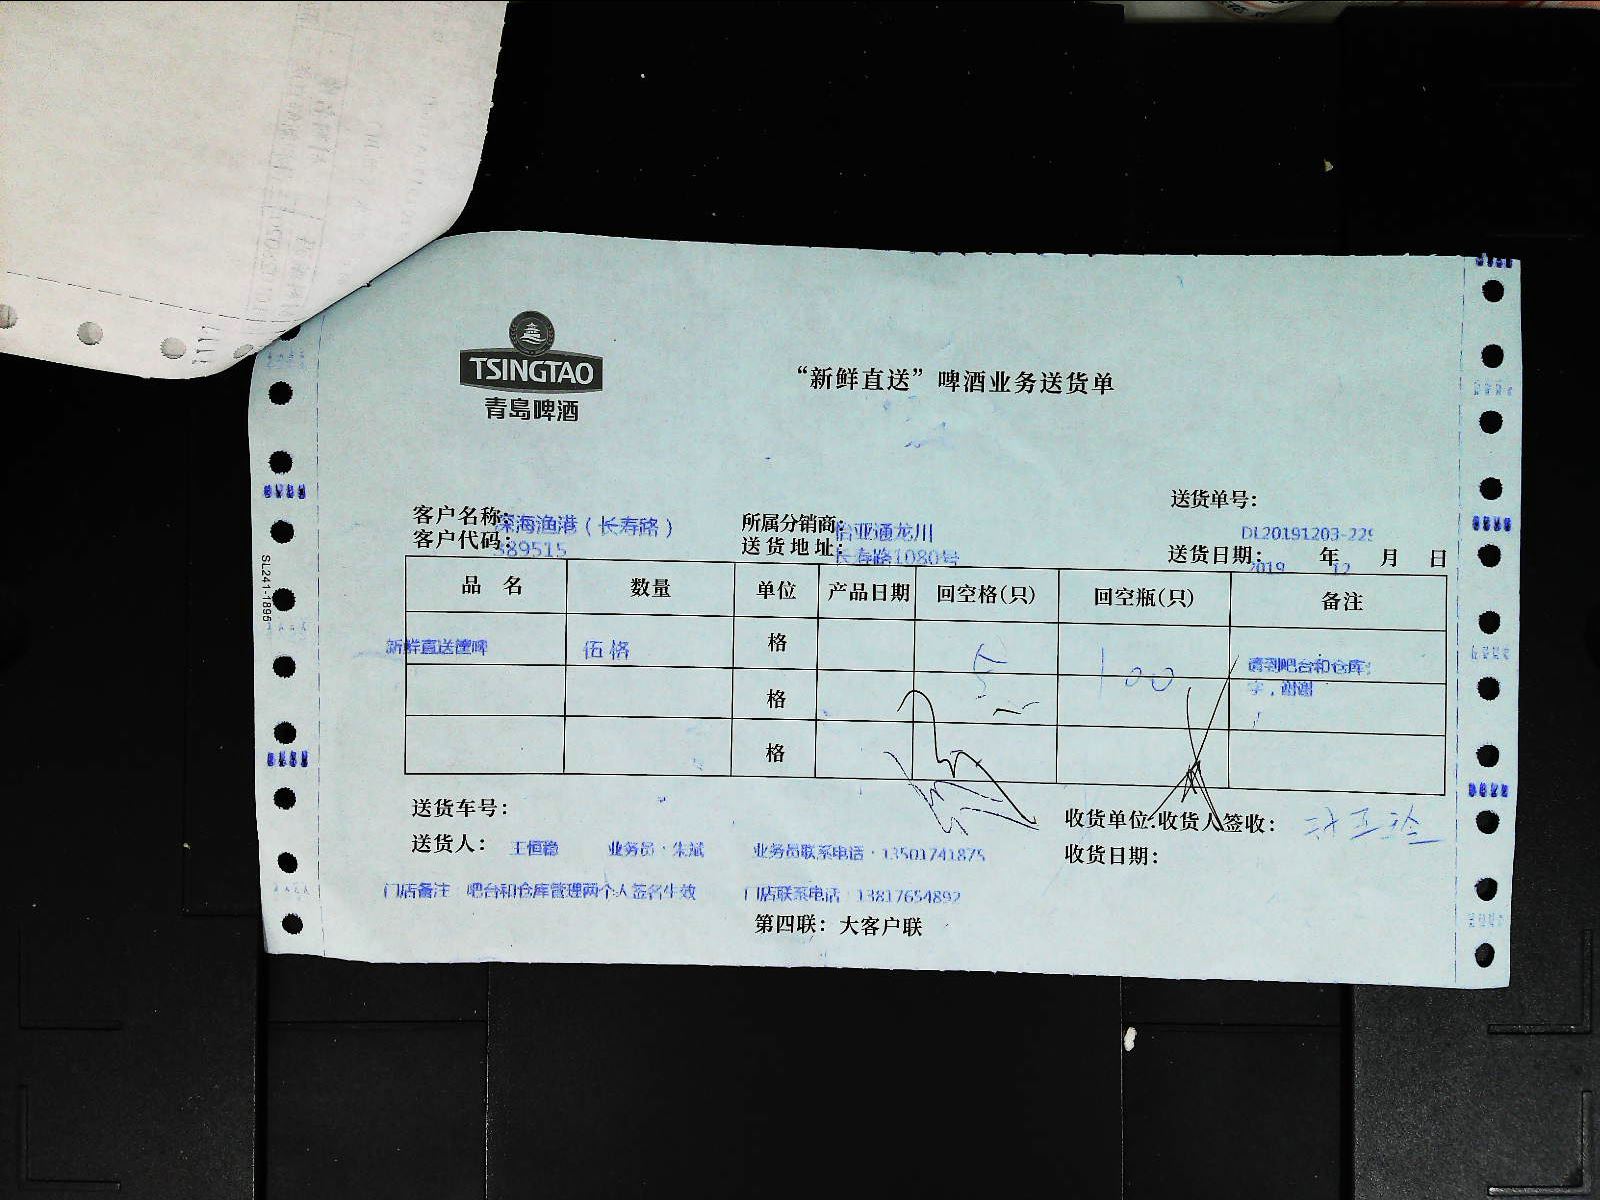 TSINGTAO
青岛啤酒
“新鲜直送”啤酒业务送货单
送货单号：
DL20191203-229
客户名称：深海渔港（长寿路）
所属分销商：怡亚通龙川
客户代码：389515
送货地址：长寿路1080号
送货日期：2019年12月 日
品 名 数量 单位 产品日期 回空格(只) 回空瓶(只) 备注
新鲜直送 伍格 格 5 100 请到吧台和仓库
字，谢谢
格
格
送货车号：
收货单位:收货人签收：
送货人： 王恒稳 业务员：朱斌 业务员联系电话：13501741875
收货日期：
门店备注：吧台和仓库管理两个人签名生效 门店联系电话：13817654892
第四联：大客户联
SL241-1895